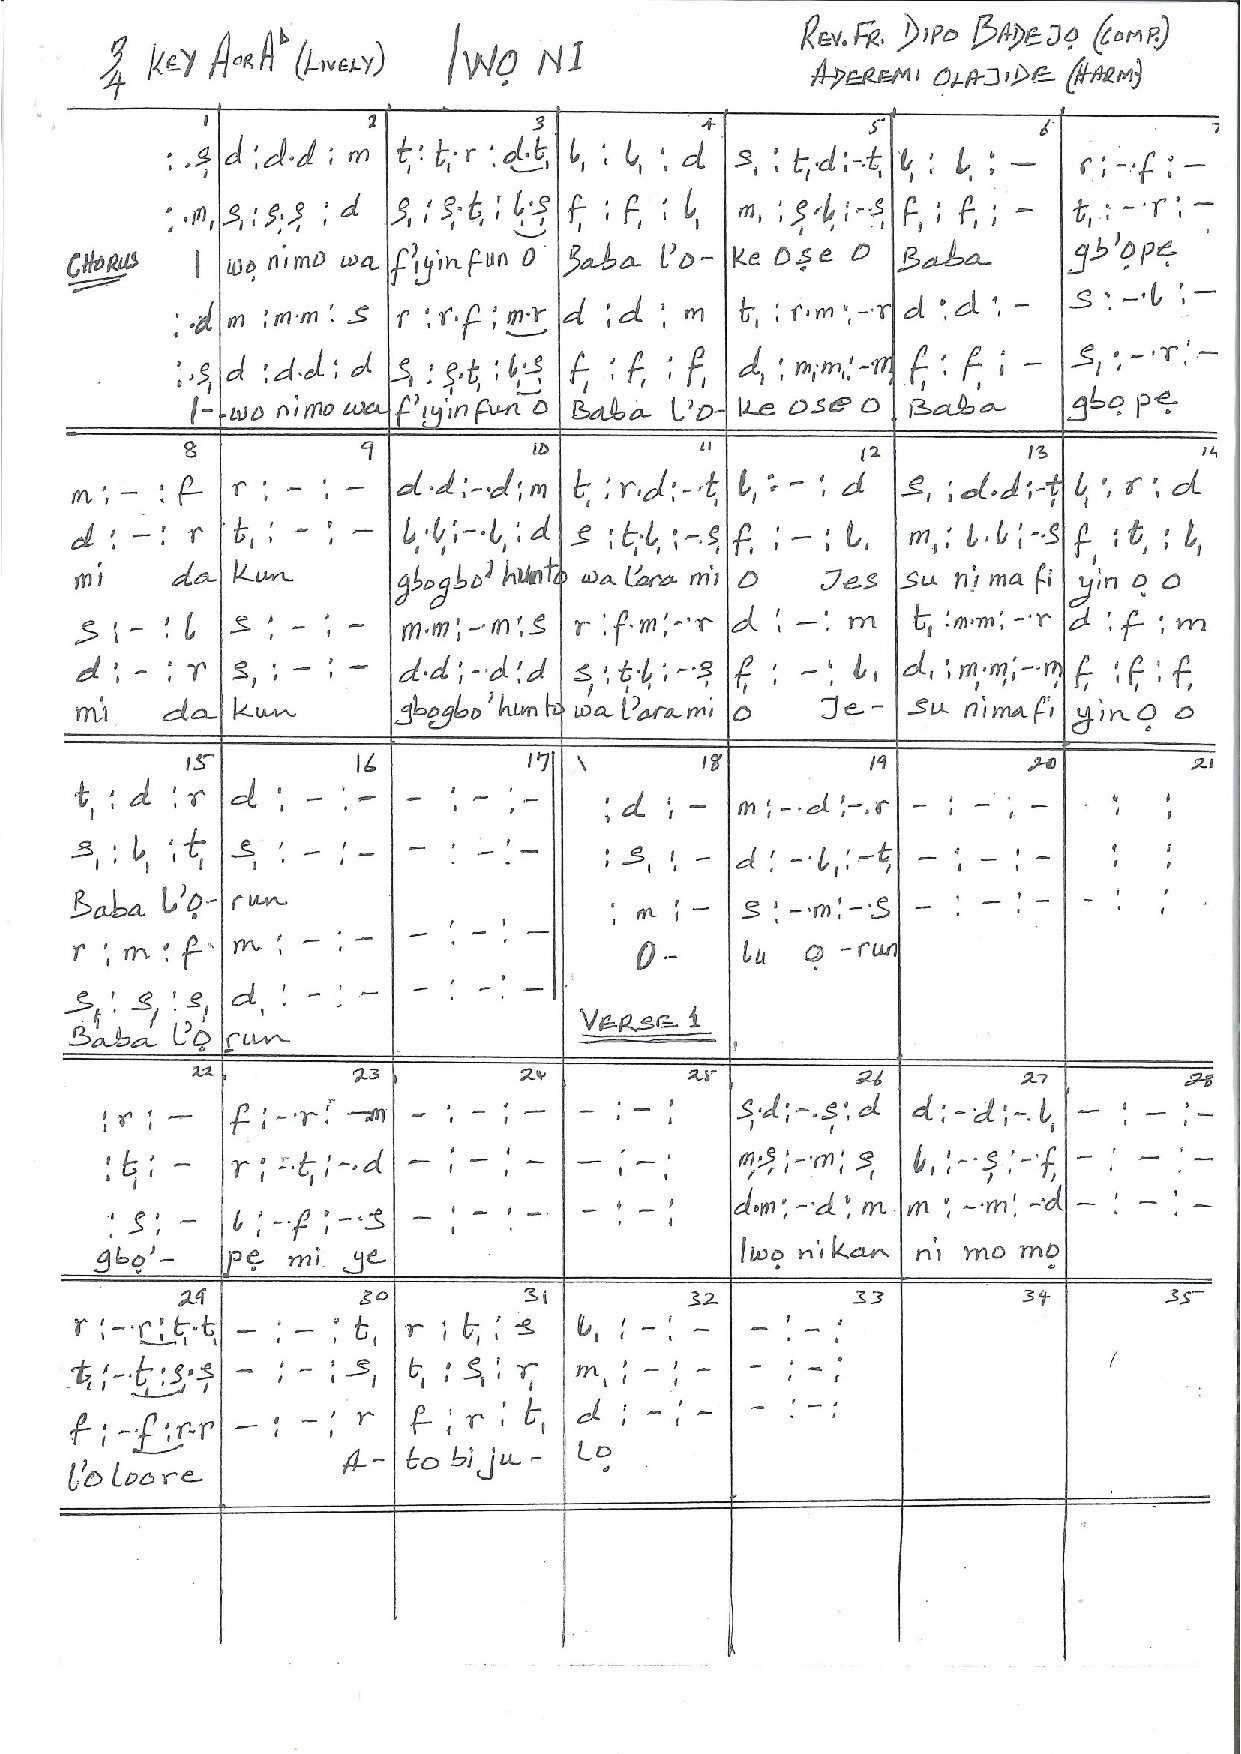 3/4 KEY A OR Ab (LIVELY) IWỌ NI REV. FR. DIPO BADEJỌ (COMP.)
ADEREMI OLAJIDE (HARM)
1 2 3 4 5 6 7
:.s̩ d:d.d:m t₁:t₁.r:d.t₁ l₁:l₁:d s₁:t₁.d:-.t₁ l₁:l₁:- r:-.f:-
:.m₁ s₁:s₁.s₁:d s₁:s₁.t₁:l₁.s₁ f₁:f₁:l₁ m₁:s₁.l₁:-.s₁ f₁:f₁:- t₁:-.r:-
CHORUS I wọ nimo wa f'iyin fun O Baba l'o- ke Oṣe O Baba gb'ọpẹ
:.d m:m.m:s r:r.f:m.r d:d:m t₁:r.m:-.r d:d:- s:-.l:-
:.s₁ d:d.d:d s₁:s₁.t₁:l₁.s₁ f₁:f₁:f₁ d₁:m₁.m₁:-.m₁ f₁:f₁:- s₁:-.r:-
I- wo nimo wa f'iyin fun O Baba l'o- ke OSe O Baba gbọ pẹ
8 9 10 11 12 13 14
m:-:f r:-:- d.d:-.d:m t₁:r.d:-.t₁ l₁:-:d s₁:d.d:-.t₁ l₁:r:d
d:-:r t₁:-:- l₁.l₁:-.l₁:d s:t₁.l₁:-.s₁ f₁:-:l₁ m₁:l.l:-.s f₁:t₁:l₁
mi da kun gbogbo' hunto wa l'ara mi O Jes su ni ma fi yin o o
s:-:l s:-:- m.m:-.m:s r:f.m:-.r d:-:m t₁:m.m:-.r d:f:m
d:-:r s₁:-:- d.d:-.d:d s₁:t₁.l₁:-.s₁ f₁:-:l₁ d₁:m₁.m₁:-.m₁ f₁:f₁:f₁
mi da kun gbọgbo'hunto wa l'ara mi O Je- su nimafi yin Ọ o
15 16 17 18 19 20 21
t₁:d:r d:-:- -:-:- :d:- m:-.d:-.r -:-:- : :
s₁:l₁:t₁ s₁:-:- -:-:- :s₁:- d:-.l₁:-.t₁ -:-:- : :
Baba L'Ọ- run :m:- s:-.m:-.s -:-:- -: :
r:m:f m:-:- -:-:- O- lu ọ -run
s₁:s₁:s₁ d₁:-:- -:-:-
Baba l'Ọ run VERSE 1
22 23 24 25 26 27 28
:r:- f:-.r:-m -:-:- -:-: s₁.d:-.s₁:d d:-.d:-.l₁ -:-:-
:t₁:- r:-.t₁:-.d -:-:- -:-: m₁.s₁:-.m₁:s₁ l₁:-.s₁:-.f₁ -:-:-
:s:- l:-.f:-.s -:-:- -:-: d.m:-.d:m m:-.m:-d -:-:-
gbọ'- pẹ mi ye Iwọ nikan ni mo mọ
29 30 31 32 33 34 35
r:-.r:t₁.t₁ -:-:t₁ r:t₁:s l₁:-:- -:-:
t₁:-.t₁:s₁.s₁ -:-:s₁ t₁:s₁:r₁ m₁:-:- -:-:
f:-.f:r.r -:-:r f:r:t₁ d:-:- -:-:
l'oloore A- to bi ju- Lọ